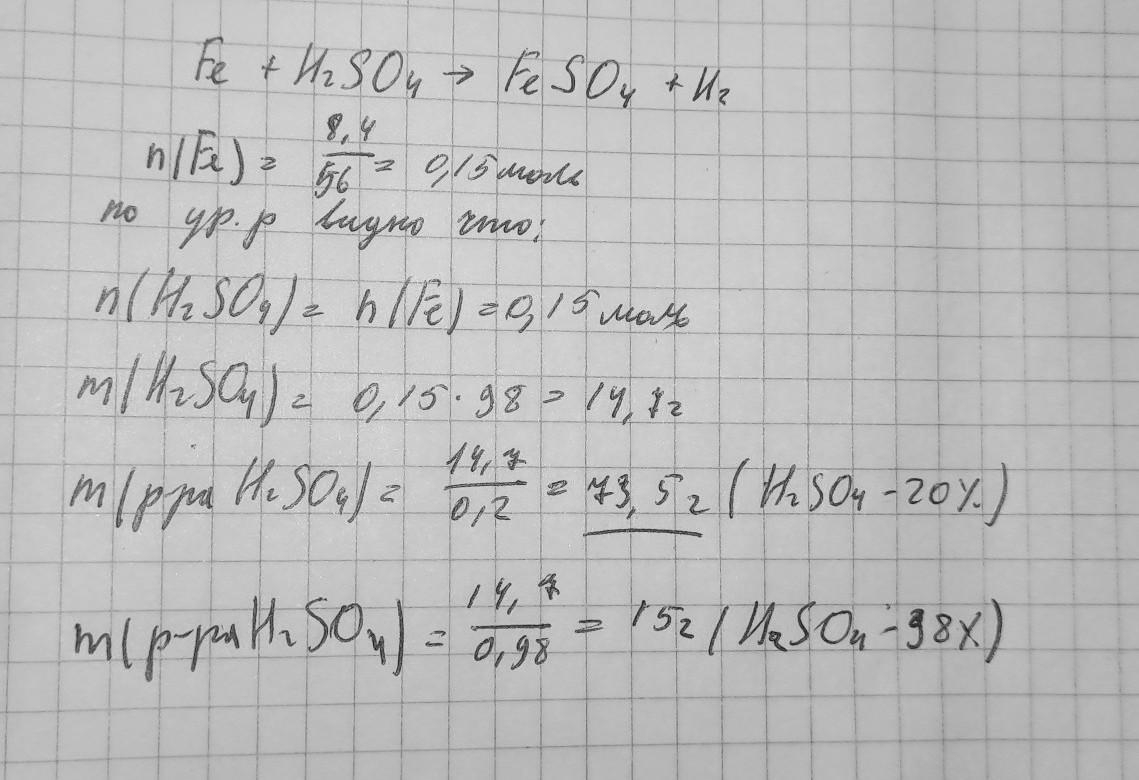 Fe + H₂SO₄ → FeSO₄ + H₂
n(Fe) = 8,4/56 = 0,15 моль
по ур. р видно что:
n(H₂SO₄) = n(Fe) = 0,15 моль
m(H₂SO₄) = 0,15 · 98 = 14,7г
m(р-ра H₂SO₄) = 14,7/0,2 = 73,5г (H₂SO₄ - 20%)
m(р-ра H₂SO₄) = 14,7/0,98 = 15г (H₂SO₄ - 98%)